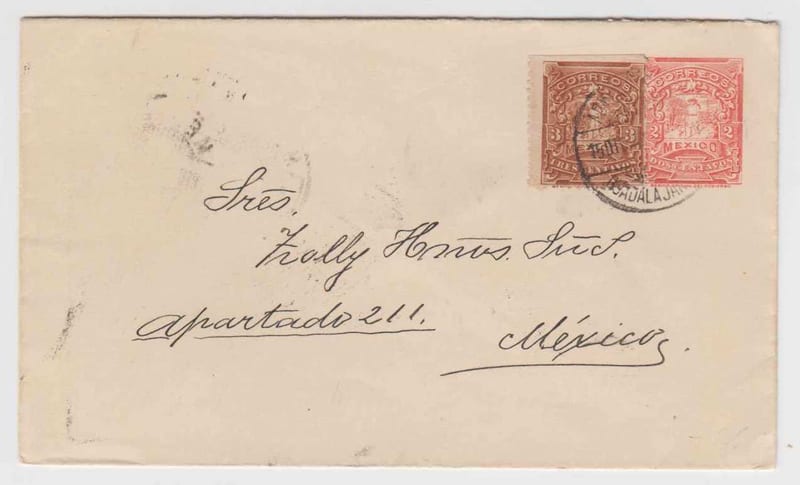 CORREOS
3 3
TRES CENTAVOS
CORREOS
2 2
MEXICO
DOS CENTAVOS
GUADALAJAR
Sres.
Zolly Hnos. Sucs.
Apartado 211.
México,